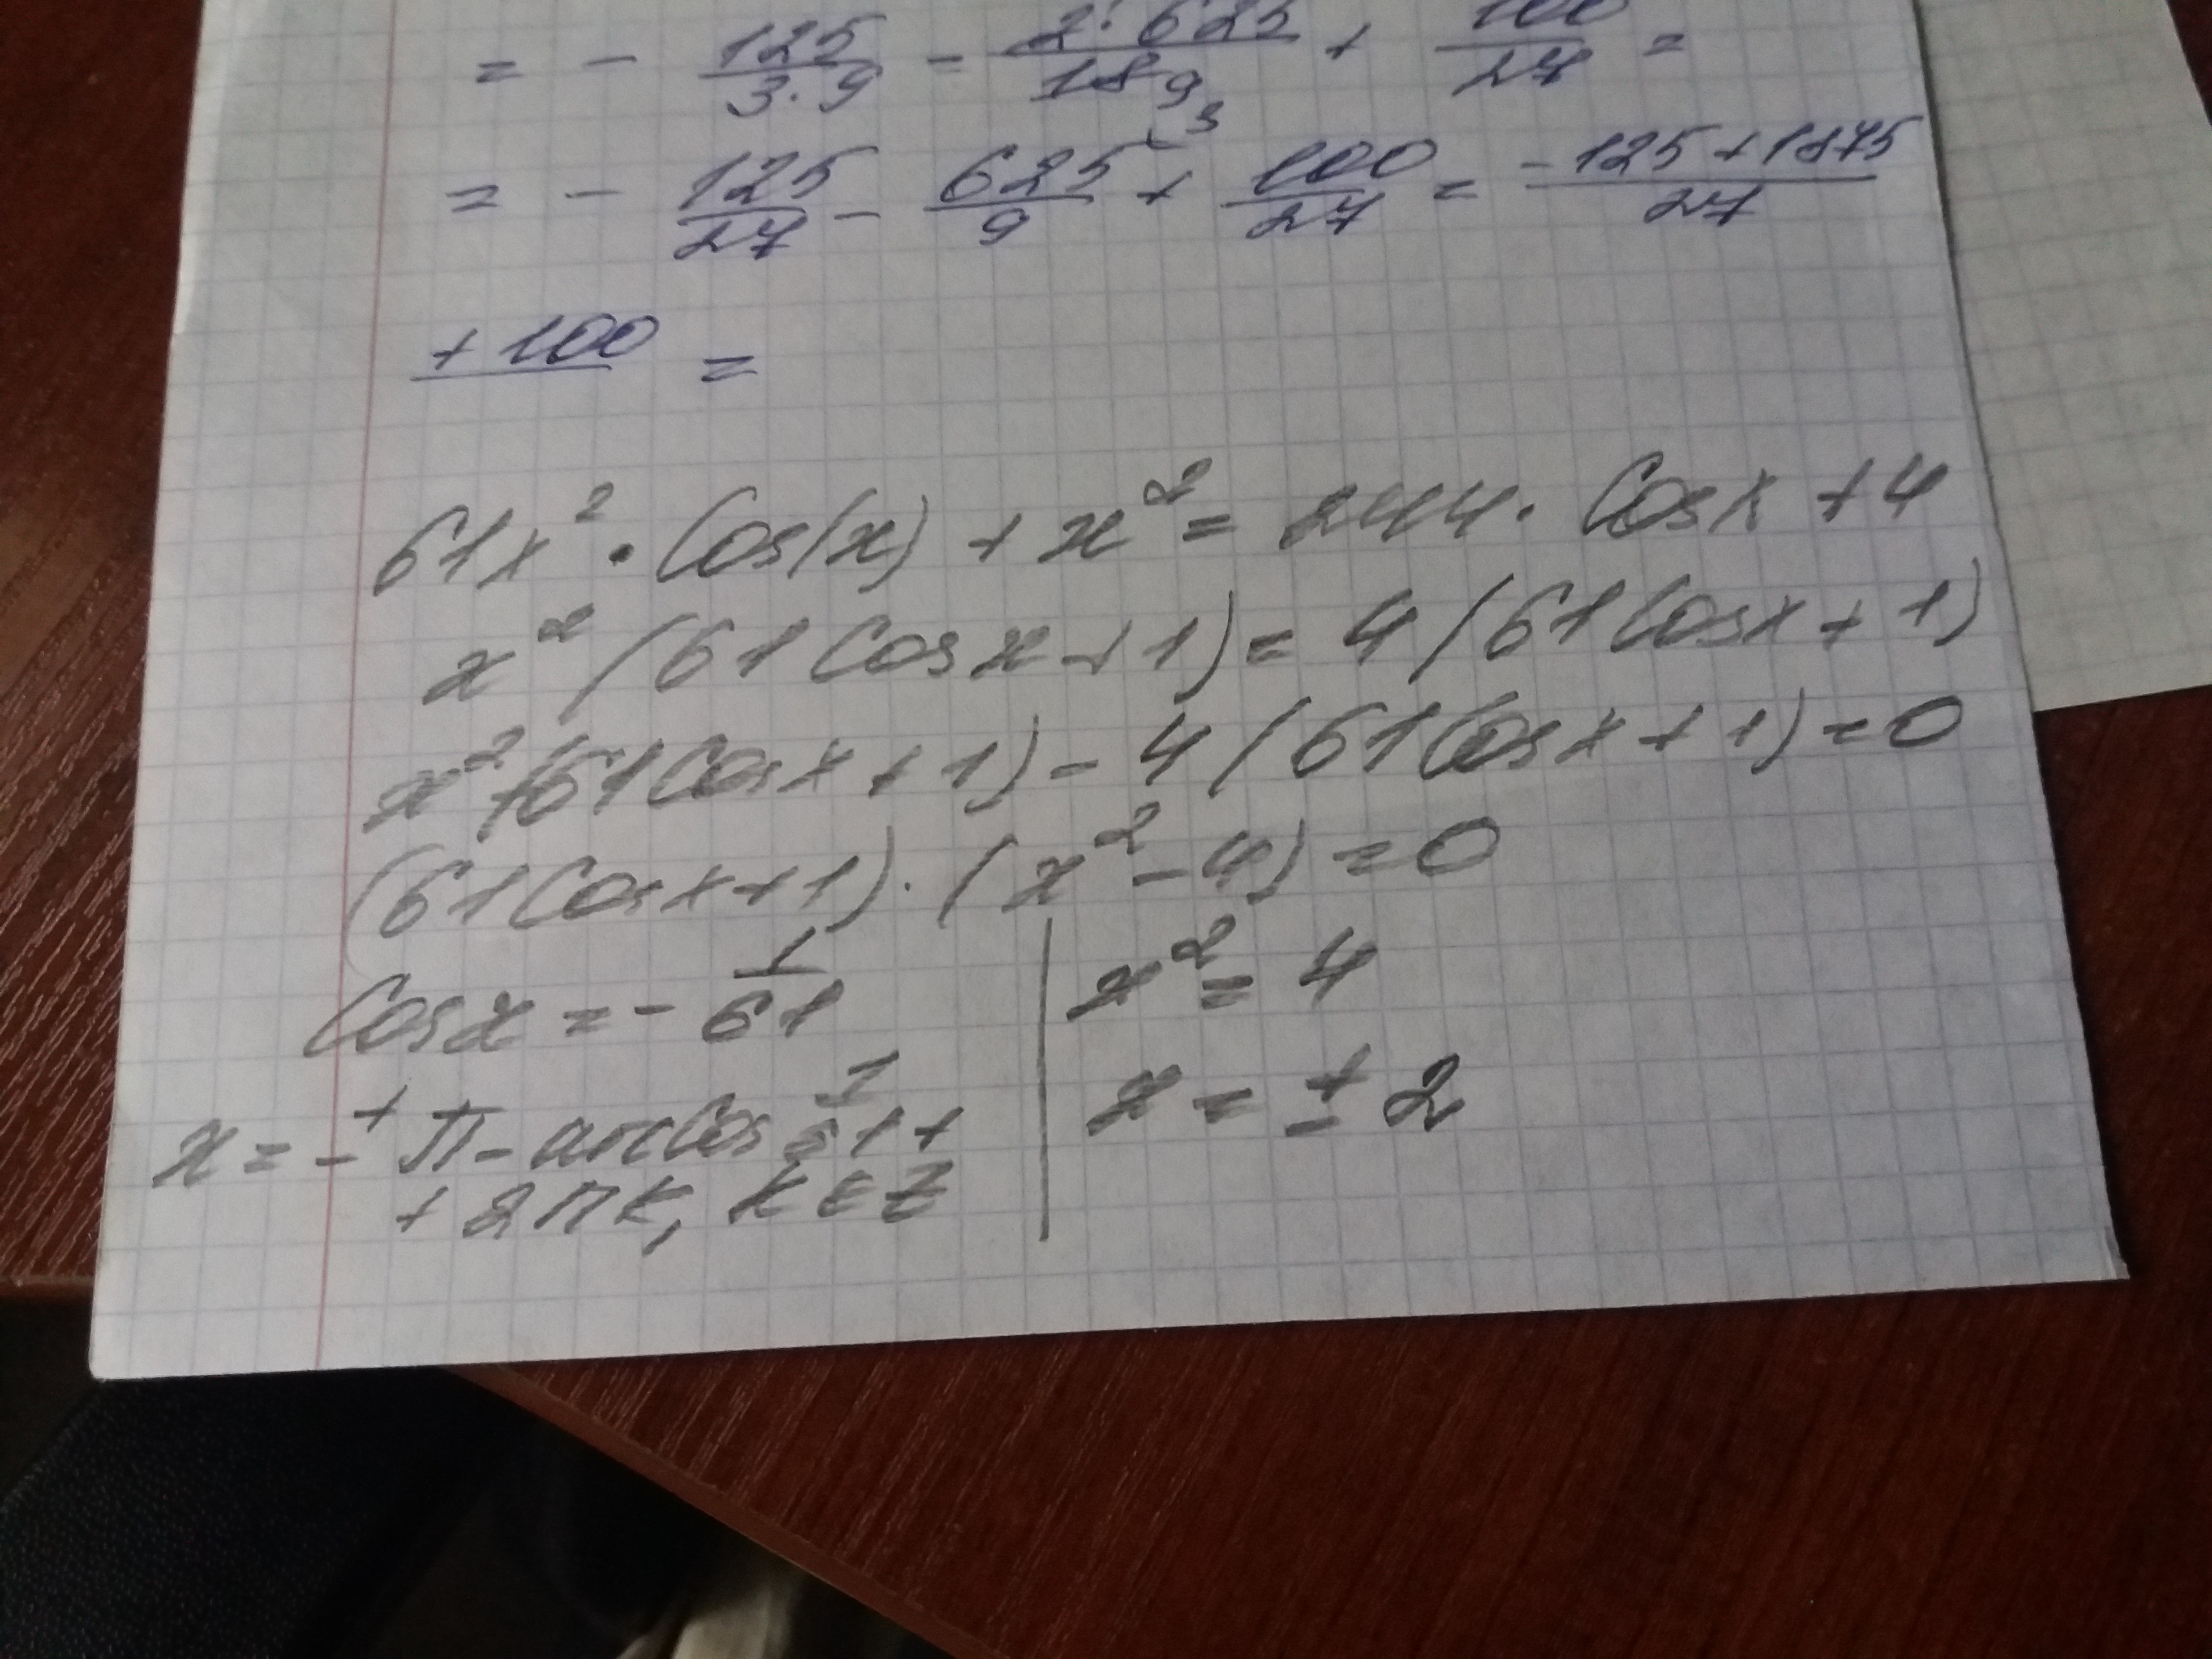 = - 125/(3·9) - 2·625/189 + 100/27 =
= - 125/27 - 625/9 ⁽³ + 100/27 = (-125+1875)/27
+100 =
61x² · Cos(x) + x² = 244 · Cosx + 4
x² (61Cosx+1) = 4(61Cosx+1)
x²(61Cosx+1) - 4(61Cosx+1) = 0
(61Cosx+1) · (x²-4) = 0
Cosx = - 1/61 | x² = 4
x = ± π - arccos 1/61 + | x = ± 2
+ 2πk, k∈Z